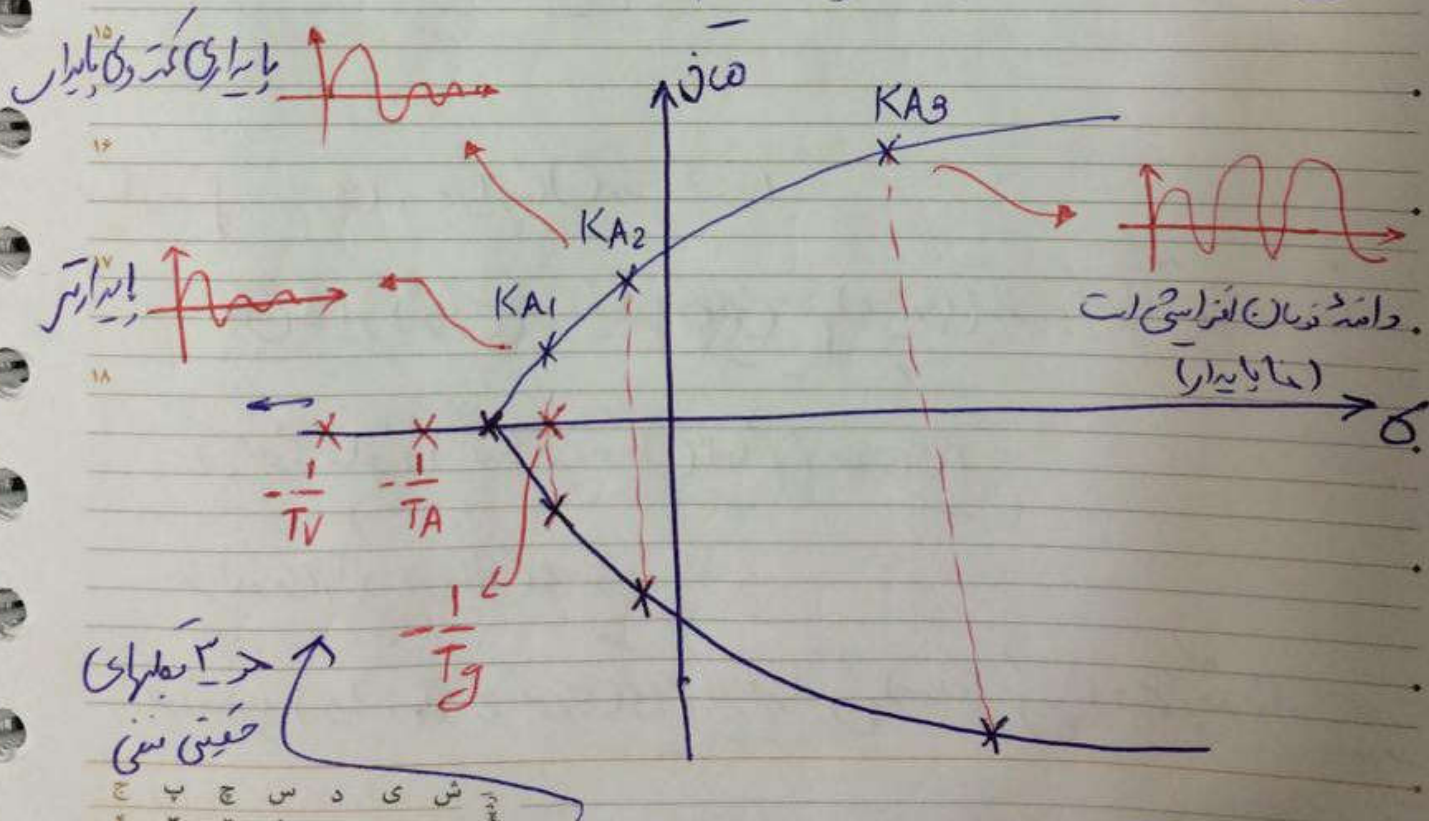 ۱۵
پایداری کمتر ولی پایدار
jω
KA3
۱۶
KA2
۱۷
پایدارتر
KA1
دامنهٔ نوسان افزایشی است
(ناپایدار)
۱۸
σ
-1/TV
-1/TA
-1/Tg
هر ۳ قطبهای
حقیقی منفی
ج پ چ س د ی ش